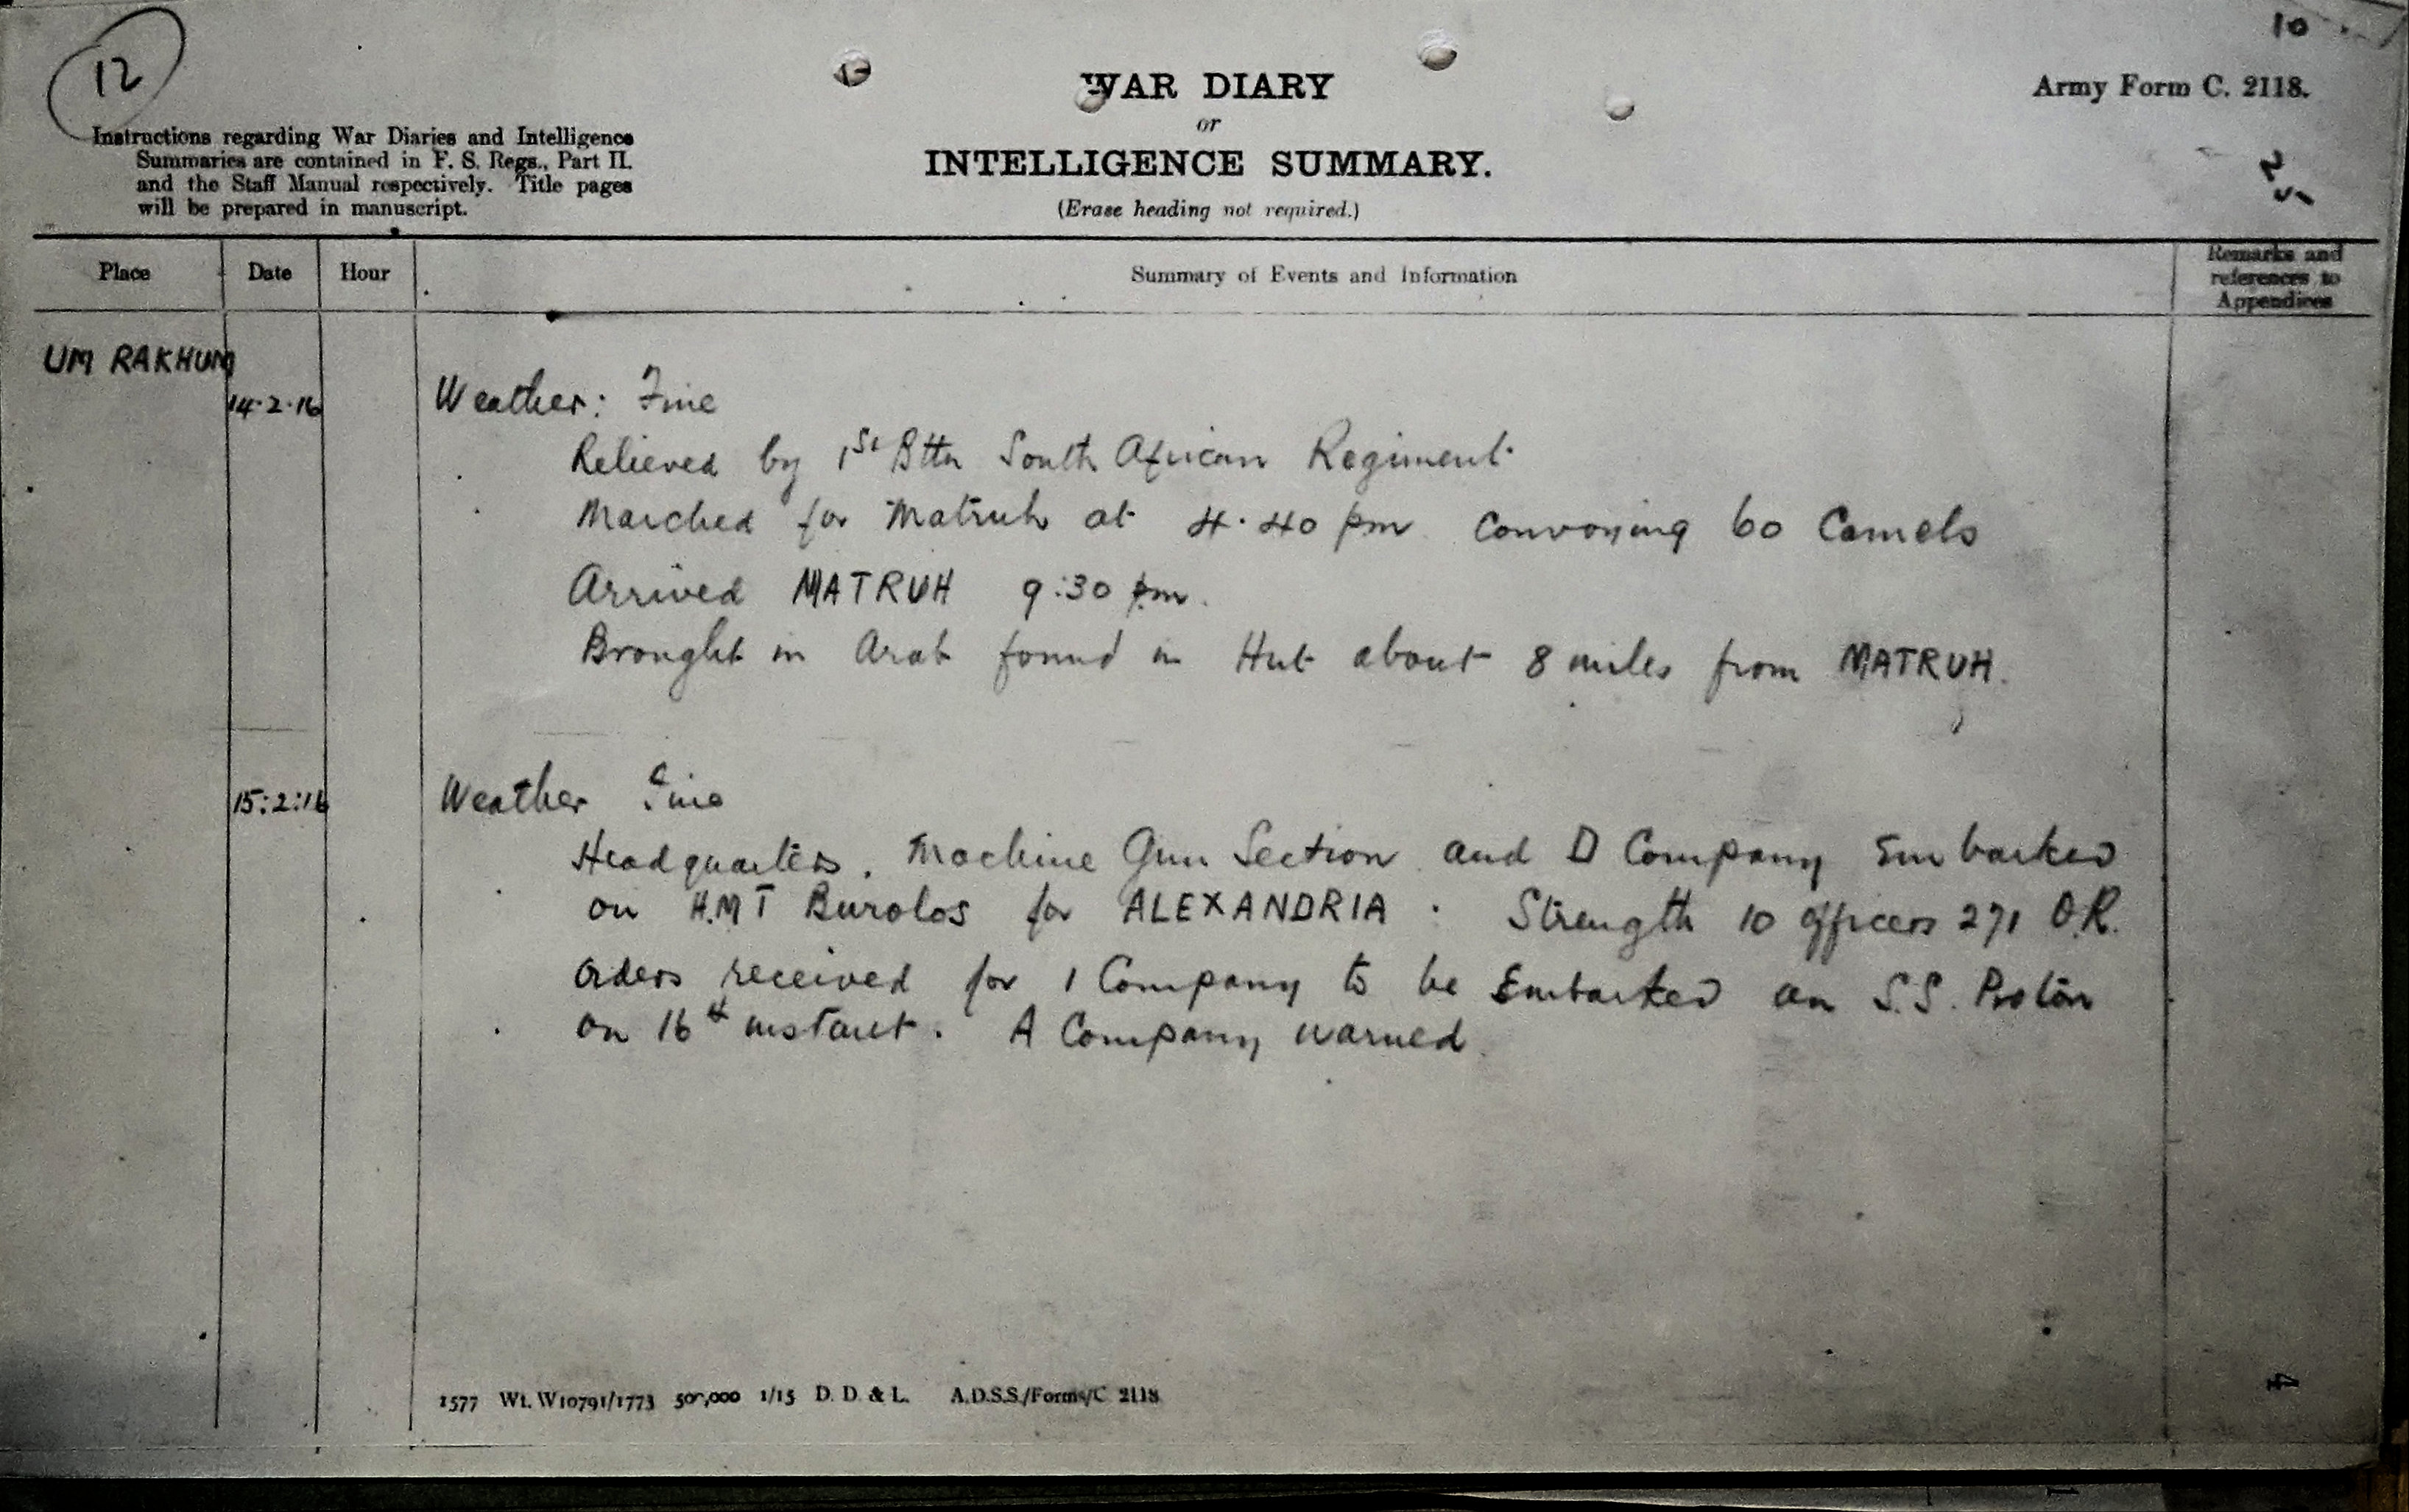 12
10
WAR DIARY
Army Form C. 2118.
or
INTELLIGENCE SUMMARY.
(Erase heading not required.)
Instructions regarding War Diaries and Intelligence
Summaries are contained in F. S. Regs., Part II.
and the Staff Manual respectively. Title pages
will be prepared in manuscript.
Place Date Hour Summary of Events and Information Remarks and
references to
Appendices
UM RAKHUM
14.2.16 Weather: Fine
Relieved by 1st Bttn South African Regiment
Marched for Matruh at 4.40 pm Convoying 60 Camels
Arrived MATRUH 9:30 pm.
Brought in Arab found in Hut about 8 miles from MATRUH.
15:2:16 Weather Fine
Headquarters, Machine Gun Section and D Company Embarked
on H.M T Burolos for ALEXANDRIA . Strength 10 officers 271 O.R.
Orders received for 1 Company to be Embarked on S.S. Proton
on 16th instant. A Company warned
1577 Wt. W10791/1773 500,000 1/15 D. D. & L. A.D.S.S./Forms/C 2118